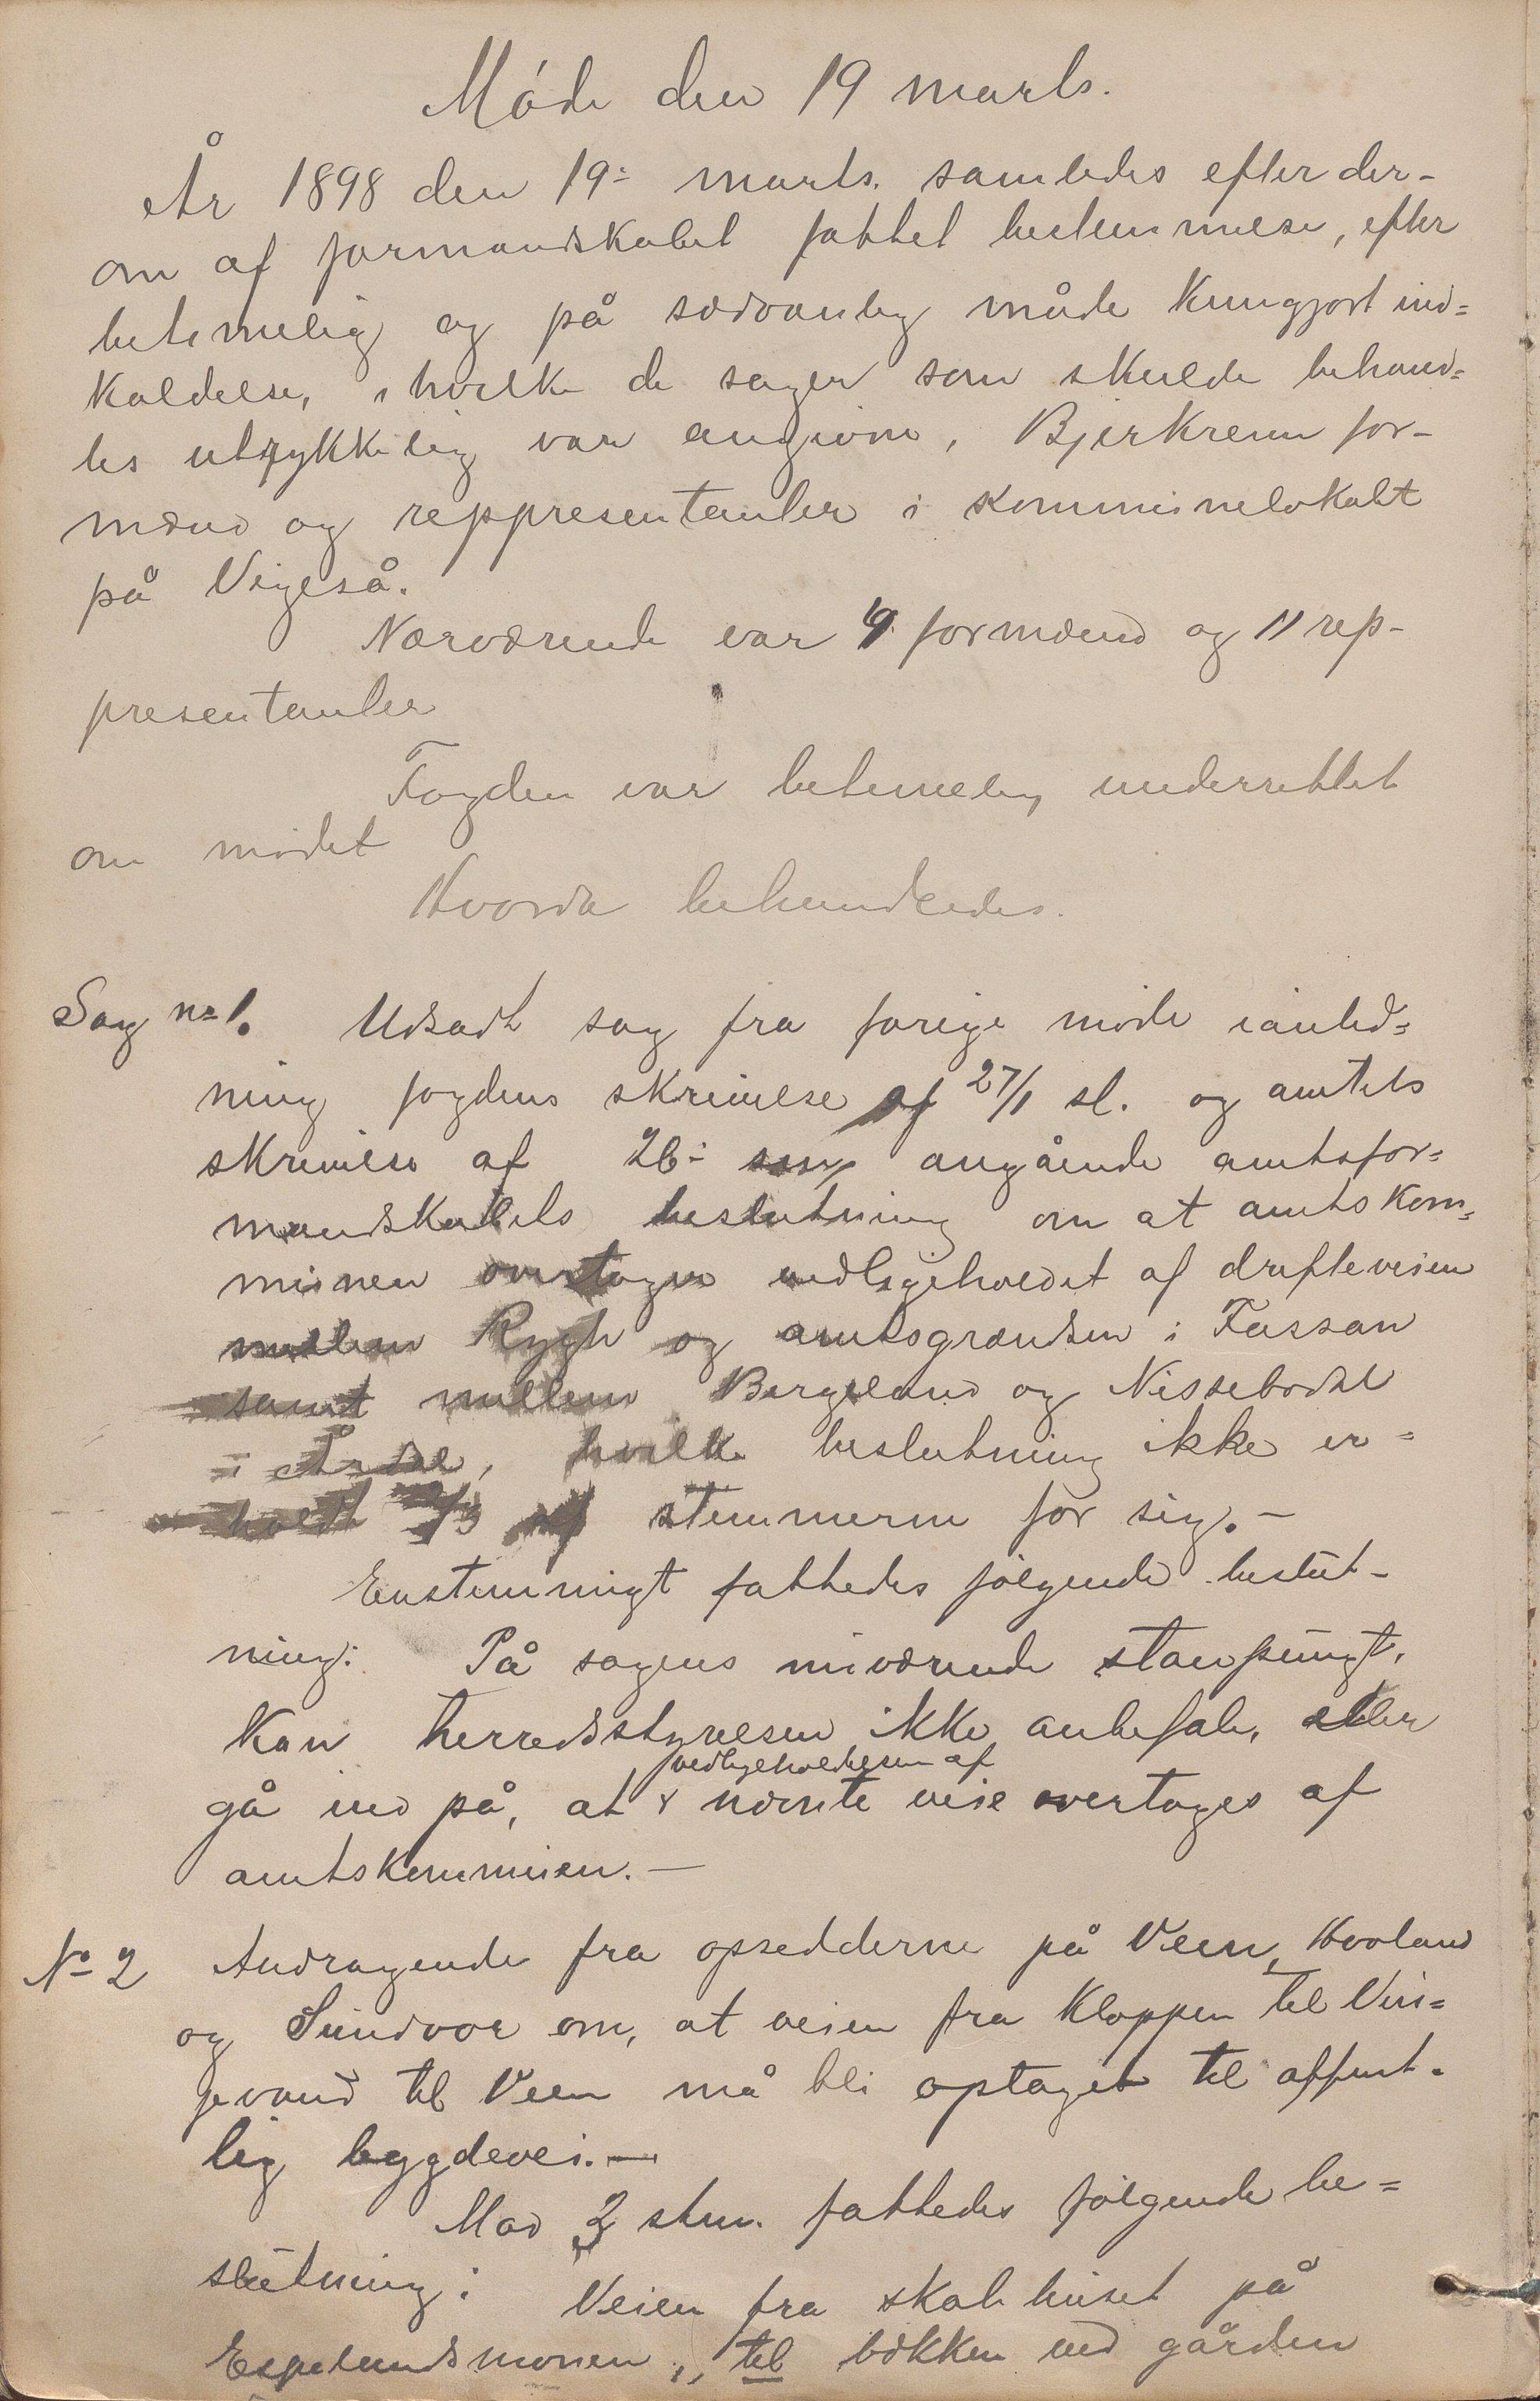 Möde den 19 marts.
År 1898 den 19: marts. samledes efter der-
om af formandskabet fattet bestemmelse, efter
betimelig og på sædvanlig måde kungjort ind=
kaldelse, i hvilke de sager som skulde behand=
les udtrykkelig var angivne, Bjerkreim for-
mænd og reppresentanter i kommunelokalet
på Vigeså.
Nærværende var 4 formænd og 11 rep-
presentanter
Fogden var betimelig underrettet
om mødet
Hvorda behandledes.
Sag no 1. Udsadt sag fra forige møde ianled=
ning fogdens skrivelse af 27/1 sl. og amtets
skrivelse af 26: angående amtsfor=
mandskabets beslutning om at amtskom=
munen overtager vedligeholdet af drifteveien
mellem Rygh og amtsgrændsen i Fassan
samt mellem Bergeland og Nissebodal
i Årdal, hvilke beslutning ikke er=
holdt 2/3 af stemmerne for sig. —
Enstemmigt fattedes følgende beslut-
ning: På sagens nuværende standpungt,
kan herredsstyrelsen ikke anbefale, eller
vedligeholdelsen af
gå ind på, at nævnte veie overtages af
amtskommunen. —
No 2 Andragende fra opsidderne på Veen, Hovland
og Sundvor om, at veien fra Kloppen til Vin=
jevand til Veen må bli optaget til offent-
lig bygdevei. —
Mod 3 stem. fattedes følgende be=
slutning: Veien fra skolehuset på
Espelandsmonen, til bækken ved gården